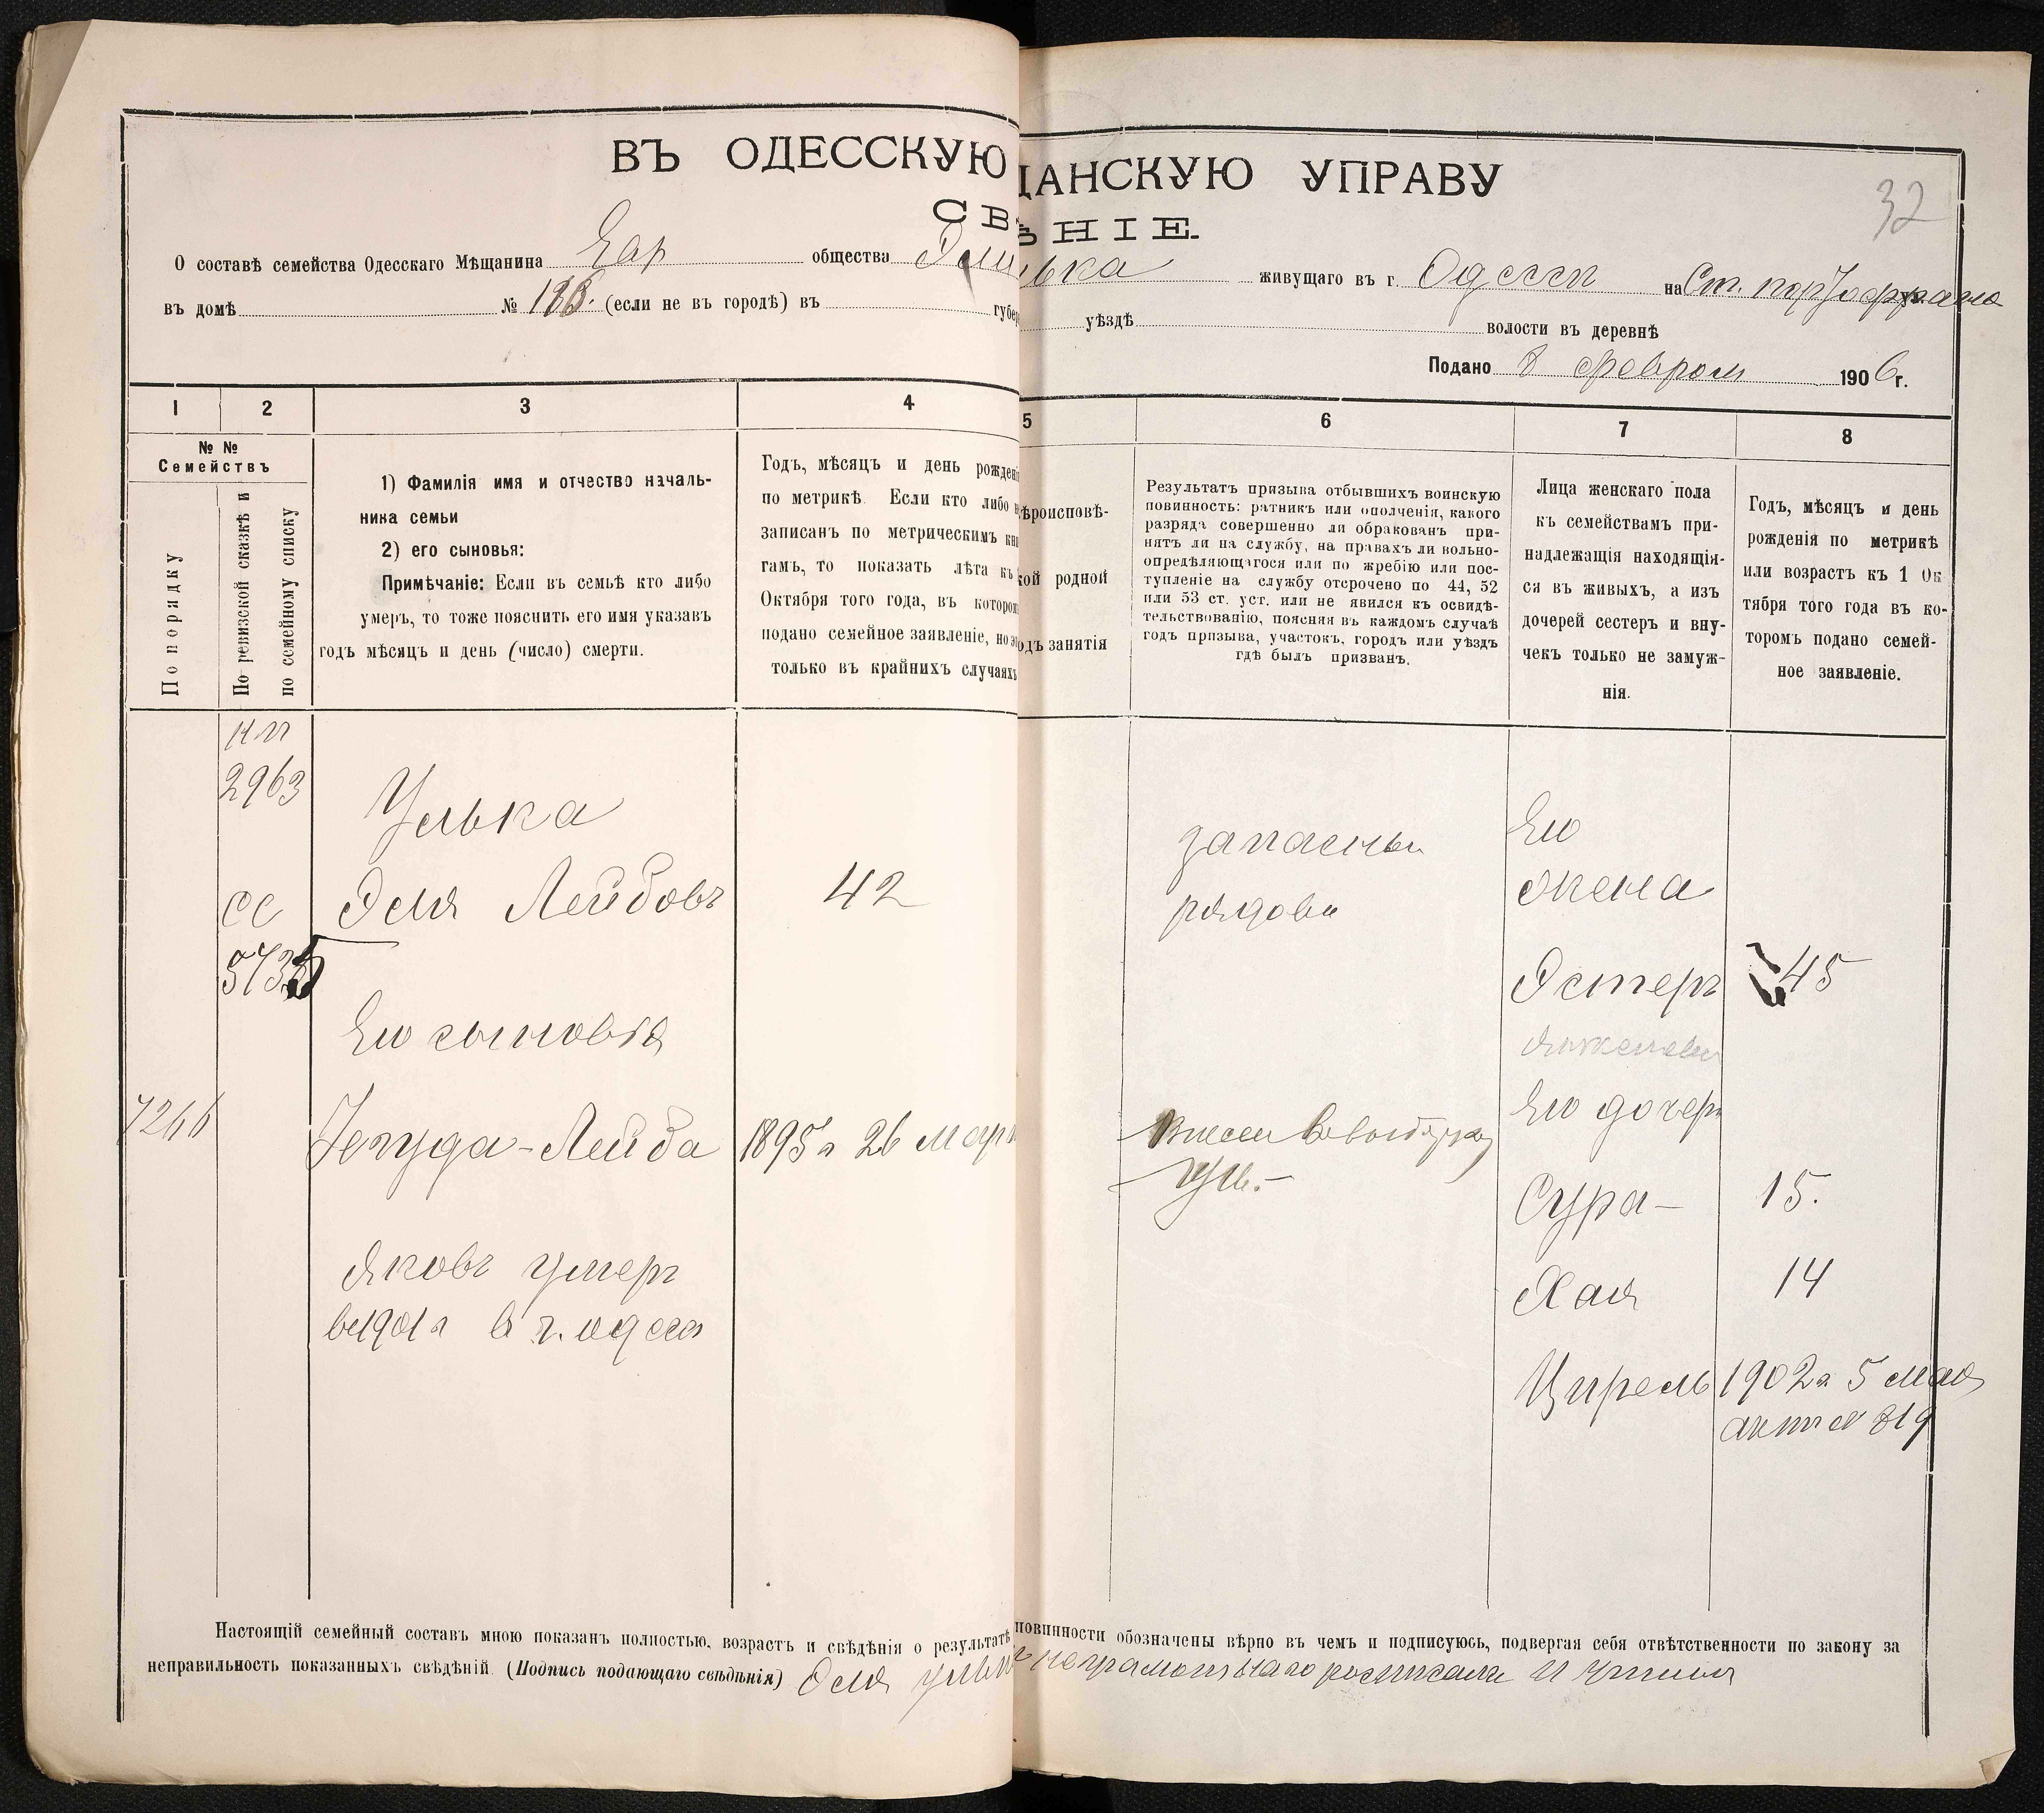 ВЪ ОДЕССКУЮ
ДАНСКУЮ УПРАВУ
32
СВ
ѢНІЕ.
О составѣ семейства Одесскаго Мѣщанина Евр общества
ька живущаго въ г. Одессѣ на Ст. порто франко
въ домѣ № (если не въ городѣ) въ губер
уѣздѣ волости въ деревнѣ
Подано 8 Февраля 1906 г.
1 2 3 4
5 6 7 8
№ №
Семействъ
По порядку
По ревизской сказкѣ и
по семейному списку
1) Фамилія имя и отчество началь-
ника семьи
2) его сыновья:
Примѣчаніе: Если въ семьѣ кто либо
умеръ, то тоже пояснить его имя указавъ
годъ мѣсяцъ и день (число) смерти.
Годъ, мѣсяцъ и день рожденія
по метрикѣ. Если кто либо не
записанъ по метрическимъ кни
гамъ, то показать лѣта къ
Октября того года, въ котором
подано семейное заявленіе, но это
только въ крайнихъ случаяхъ
ѣроисповѣ-
кой родной
одъ занятія
Результатъ призыва отбывшихъ воинскую
повинность: ратникъ или ополченія, какого
разряда совершенно ли обракованъ при-
нятъ ли на службу, на правахъ ли вольно-
опредѣляющагося или по жребію или пос-
тупленіе на службу отсрочено по 44, 52
или 53 ст. уст. или не явился къ освидѣ-
тельствованію, поясняя въ каждомъ случаѣ
годъ призыва, участокъ, городъ или уѣздъ
гдѣ былъ призванъ.
Лица женскаго пола
къ семействамъ при-
надлежащія находящія-
ся въ живыхъ, а изъ
дочерей сестеръ и вну-
чекъ только не замуж-
нія.
Годъ, мѣсяцъ и день
рожденія по метрикѣ
или возрастъ къ 1 Ок
тября того года въ ко-
торомъ подано семей-
ное заявленіе.
2963
Улька
Эля Лейбовъ 42
СС
5735
Его сыновья
7266
Іегуда-Лейба 1895 г 26 Март
Яковъ умеръ
в 1901 г в г. Одесса
запасный
рядовой
Его
жена
Эстеръ 45
Его дочери
Сура- 15.
Хая 14
Ципрель 1902 г. 5 мая
актъ № 819
Настоящій семейный составъ мною показанъ полностью, возрастъ и свѣдѣнія о результатѣ
повинности обозначены вѣрно въ чемъ и подписуюсь, подвергая себя отвѣтственности по закону за
неправильность показанныхъ свѣдѣній (Подпись подающаго свѣдѣнія) Эля Ульк